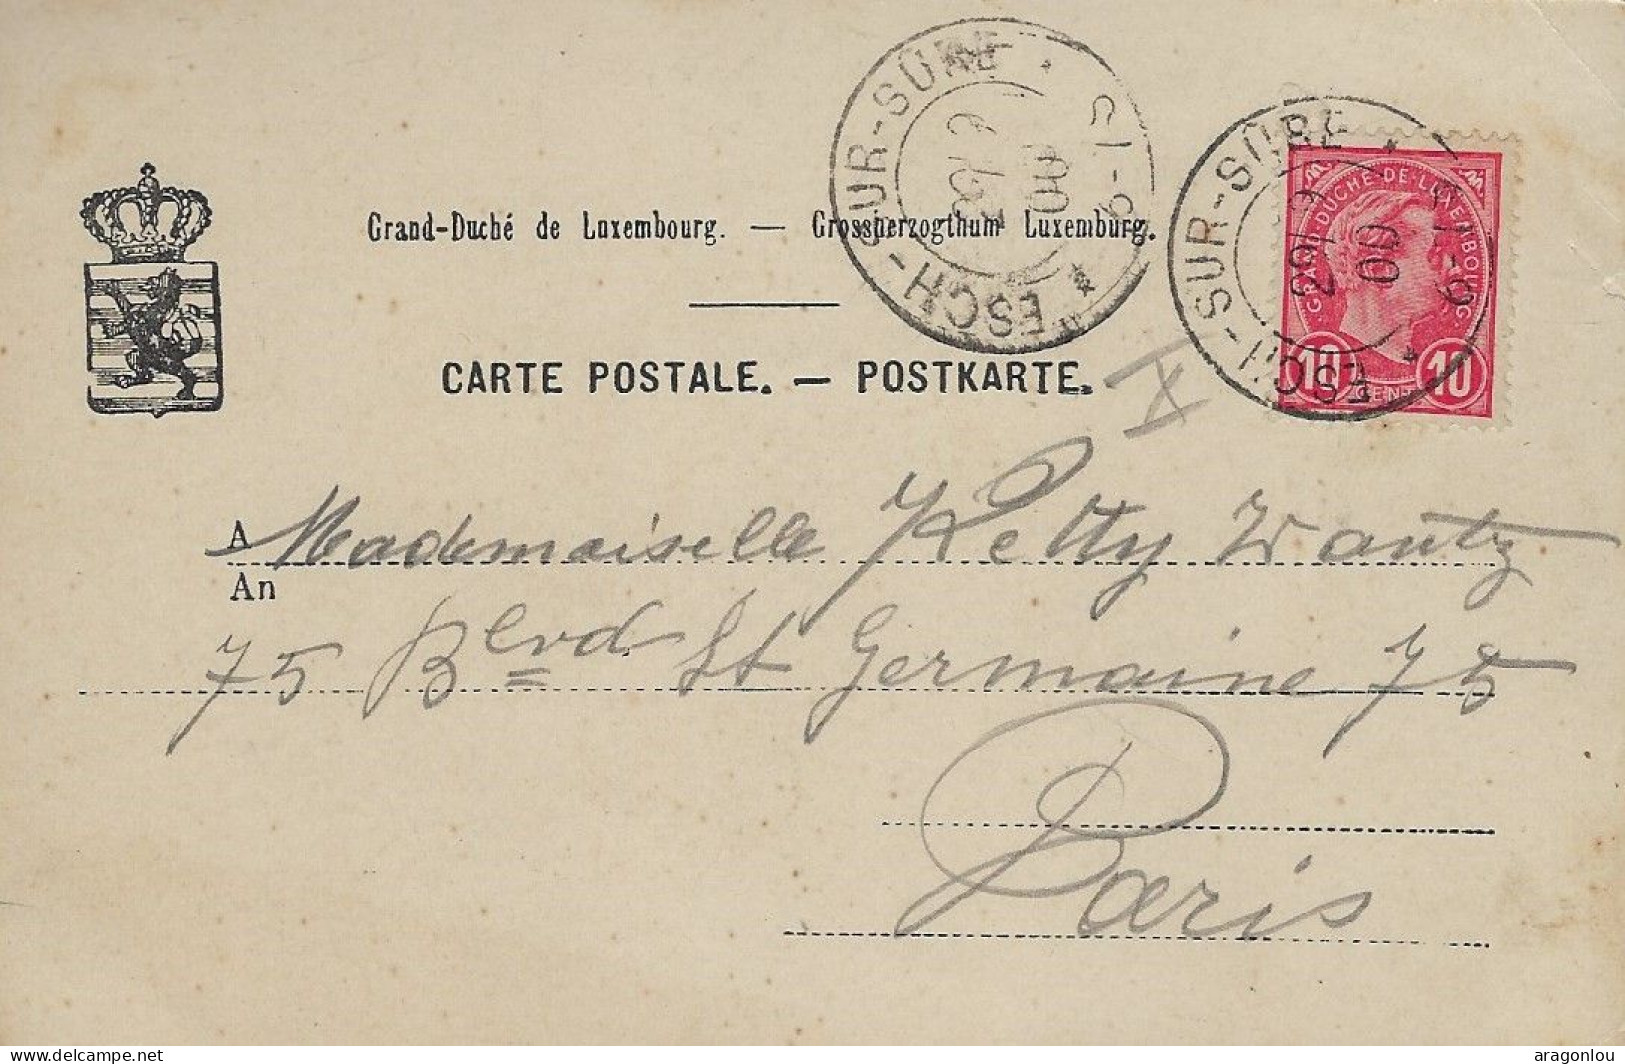 ESCH-SUR-SÛRE
ESCH-SUR-SÛRE
GRAND-DUCHÉ-DE-LUXEMBOURG
10 CENT. 10
Grand-Duché de Luxembourg. — Grossherzogthum Luxemburg.
CARTE POSTALE. — POSTKARTE.
X
A Mademoiselle Ketty Wantz
An
75 Blvd St Germaine 75
Paris
delcampe.net
aragonlou